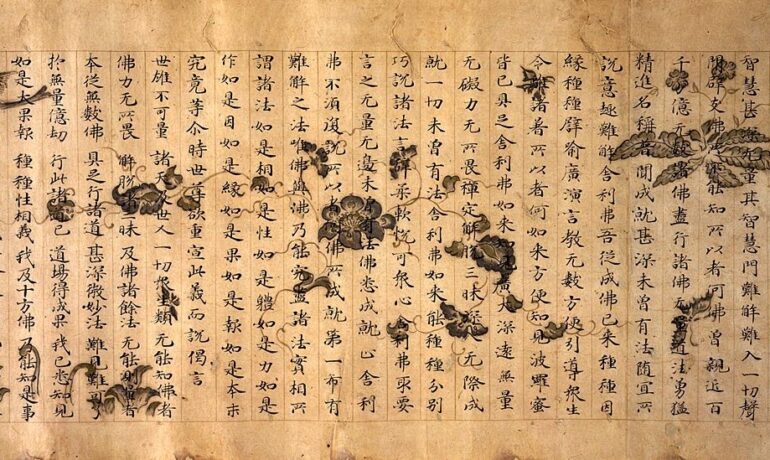 智慧甚深无量其智慧門難解難入一切聲
聞辟支佛所不能知所以者何佛曾親近百
千万億无數諸佛盡行諸佛无量道法勇猛
精進名稱普聞成就甚深未曾有法隨宜所
說意趣難解舍利弗吾從成佛已來種種因
緣種種譬喻廣演言教无數方便引導衆生
令離諸著所以者何如來方便知見波羅蜜
皆已具足舍利弗如來知見廣大深遠無量
无礙力无所畏禪定解脫三昧深入无際成
就一切未曾有法舍利弗如來能種種分別
巧說諸法言辭柔軟悅可衆心舍利弗取要
言之无量无邊未曾有法佛悉成就止舍利
弗不須復說所以者何佛所成就第一希有
難解之法唯佛與佛乃能究盡諸法實相所
謂諸法如是相如是性如是體如是力如是
作如是因如是緣如是果如是報如是本末
究竟等尒時世尊欲重宣此義而說偈言
世雄不可量 諸天及世人 一切衆生類 无能知佛者
佛力无所畏 解脫諸三昧 及佛諸餘法 无能測量者
本從無數佛 具足行諸道 甚深微妙法 難見難可了
於無量億劫 行此諸道已 道場得成果 我已悉知見
如是大果報 種種性相義 我及十方佛 乃能知是事